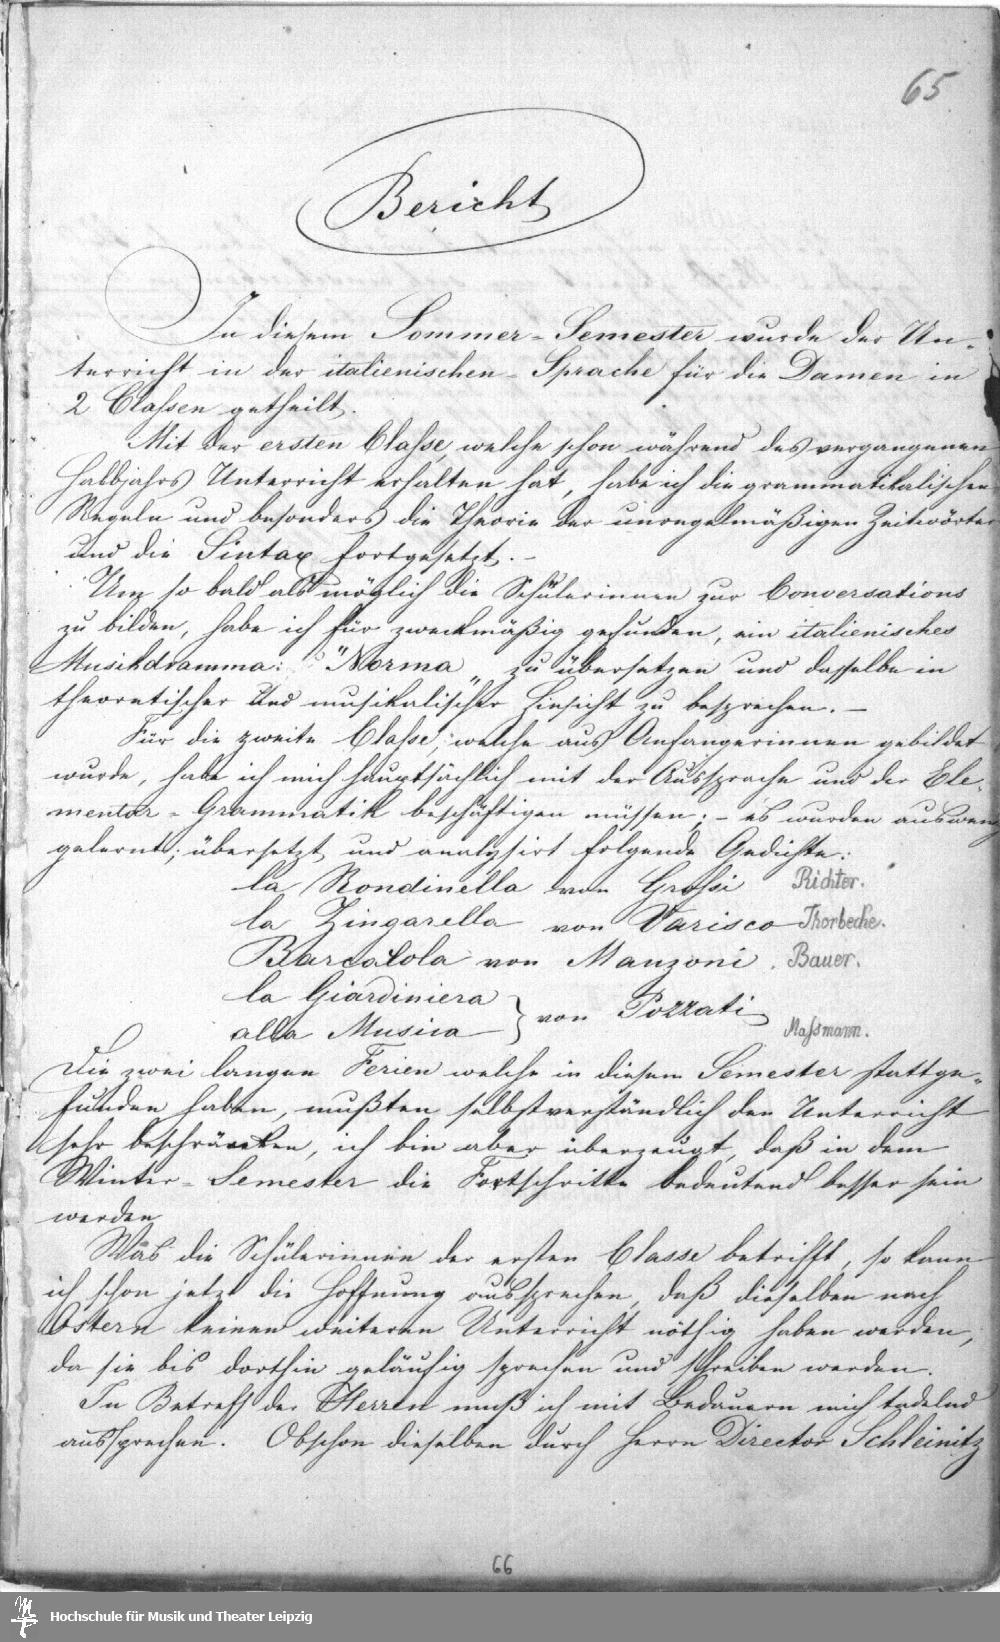 65
Bericht
In diesem Sommer-Semester wurde der Un-
terricht in der italienischen-Sprache für die Damen in
2 Classen getheilt.
Mit der ersten Classe, welche schon während des vergangenen
Halbjahrs Unterricht erhalten hat, habe ich die grammatikalischen
Regeln und besonders die Theorie der unregelmäßigen Zeitwörter
und die Sintax fortgesetzt. –
Um so bald als möglich die Schülerinnen zur Conversations
zu bilden, habe ich für zweckmäßig gefunden, ein italienisches
Musikdramma: "Norma" zu übersetzen und dasselbe in
theoretischer und musikalischer Hinsicht zu besprechen. –
Für die zweite Classe, welche aus Anfangerinnen gebildet
wurde, habe ich mich hauptsächlich mit der Aussprache und der Ele-
mentar-Grammatik beschäftigen müssen; – es wurden auswend
gelernt, übersetzt und analysirt folgende Gedichte:
la Rondinella von Grossi Richter.
la Zingarella von Varisco Thorbecke.
Barcalola von Manzoni. Bauer.
la Giardiniera
alla Musica } von Pozzati Massmann.
Die zwei langen Ferien welche in diesem Semester stattge-
funden haben, mußten selbstverständlich den Unterricht
sehr beschränken, ich bin aber überzeugt, daß in dem
Winter-Semester die Fortschritte bedeutend besser sein
werden
Was die Schülerinnen der ersten Classe betrifft, so kann
ich schon jetzt die Hoffnung aussprechen, daß dieselben nach
Ostern keinen weiteren Unterricht nöthig haben werden,
da sie bis dorthin geläufig sprechen und schreiben werden.
In Betreff der Herren muß ich mit Bedauern mich tadelnd
aussprechen. Obschon dieselben durch Herrn Director Schleinitz
66
Hochschule für Musik und Theater Leipzig